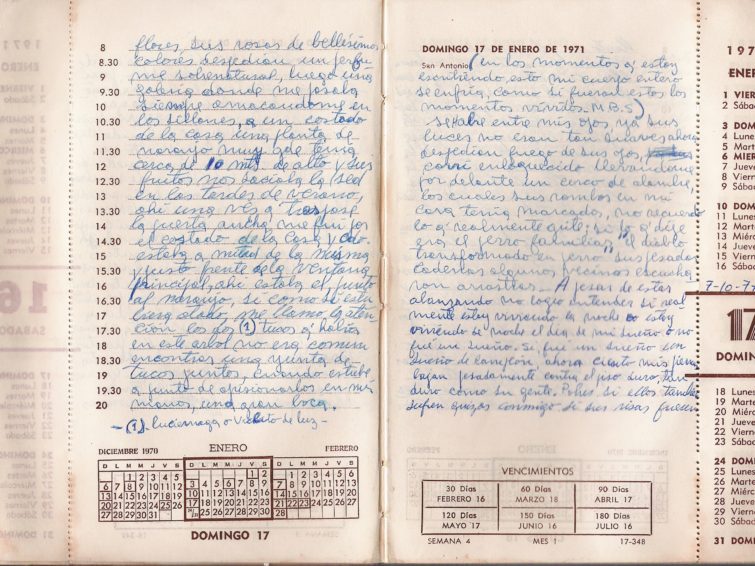 8 flores, sus rosas de bellísimos
8.30 colores despedían un perfu
9 me sobrenatural, luego una
9.30 galería donde me posaba
10 siempre amacandome en
10.30 los sillones, a un costado
11 de la casa una planta de
11.30 naranjo muy que tenía
12 cerca de 10 mts de alto y sus
12.30 frutos nos saciaba la sed
13 en las tardes de verano,
13.30 ahí una vés a traspasé
14 la puerta ancha me fui por
14.30 el costado de la casa y cdo
15 estaba a mitad de la misma
15.30 y justo frente de la ventana
16 principal, ahí estaba el junto
16.30 al naranjo, si como si estu
17 biera atado, me llamo la aten
17.30 ción los dos (1) tucos q' había
18 en este arbol no era común
18.30 encontrar una yunta de
19 tucos juntos, cuando estube
19.30 a punto de apicionarlos en mis
20 manos, una gran boca.
- (1) luciernaga o vichito de luz -
DICIEMBRE 1970 ENERO FEBRERO
D L M M J V S D L M M J V S D L M M J V S
DOMINGO 17
DOMINGO 17 DE ENERO DE 1971
San Antonio (en los momentos q' estoy
escribiendo, esto mi cuerpo entero
se enfria, como si fueran estos los
momentos vividos. M.B.S)
se abre entre mis ojos, ya sus
luces no eran tan suaves ahora
despedían fuego de sus ojos,
corri enloquecido llevandome
por delante un cerco de alambre,
los cuales sus rombos en mi
cara tenía marcados, no recuerdo
lo q' realmente grité; si lo q' dije
era el perro familiar, el diablo
transformado en perro sus pesadas
cadenas algunos vecinos escucha
ron arrastrar - A pesar de estar
alcanzando no logro entender si real
mente estoy viviendo la noche o estoy
viviendo de noche el dia de mi sueño o no
fué un sueño. Si, fué un sueño con
sueño de ahora siento mis piernas
bajan pesadamente contra el piso duro, tan
duro como su gente. Pobres si ellos tambien
sufren quizás conmigo si sus risas fueran
VENCIMIENTOS
30 Días 60 Días 90 Días
FEBRERO 16 MARZO 18 ABRIL 17
120 Días 150 Días 180 Días
MAYO 17 JUNIO 16 JULIO 16
SEMANA 4 MES 1 17-348
197
ENER
1 VIER
2 Sábad
3 DOM
4 Lunes
5 Marte
6 MIER
7 Jueve
8 Viern
9 Sába
10 DOM
11 Lunes
12 Marte
13 Miérc
14 Jueve
15 Vierne
16 Sábad
7-10-77
17
DOMIN
18 Lunes
19 Marte
20 Miérc
21 Jueve
22 Viern
23 Sábad
24 DOM
25 Lunes
26 Marte
27 Miérc
28 Jueve
29 Viern
30 Sábad
31 DOM